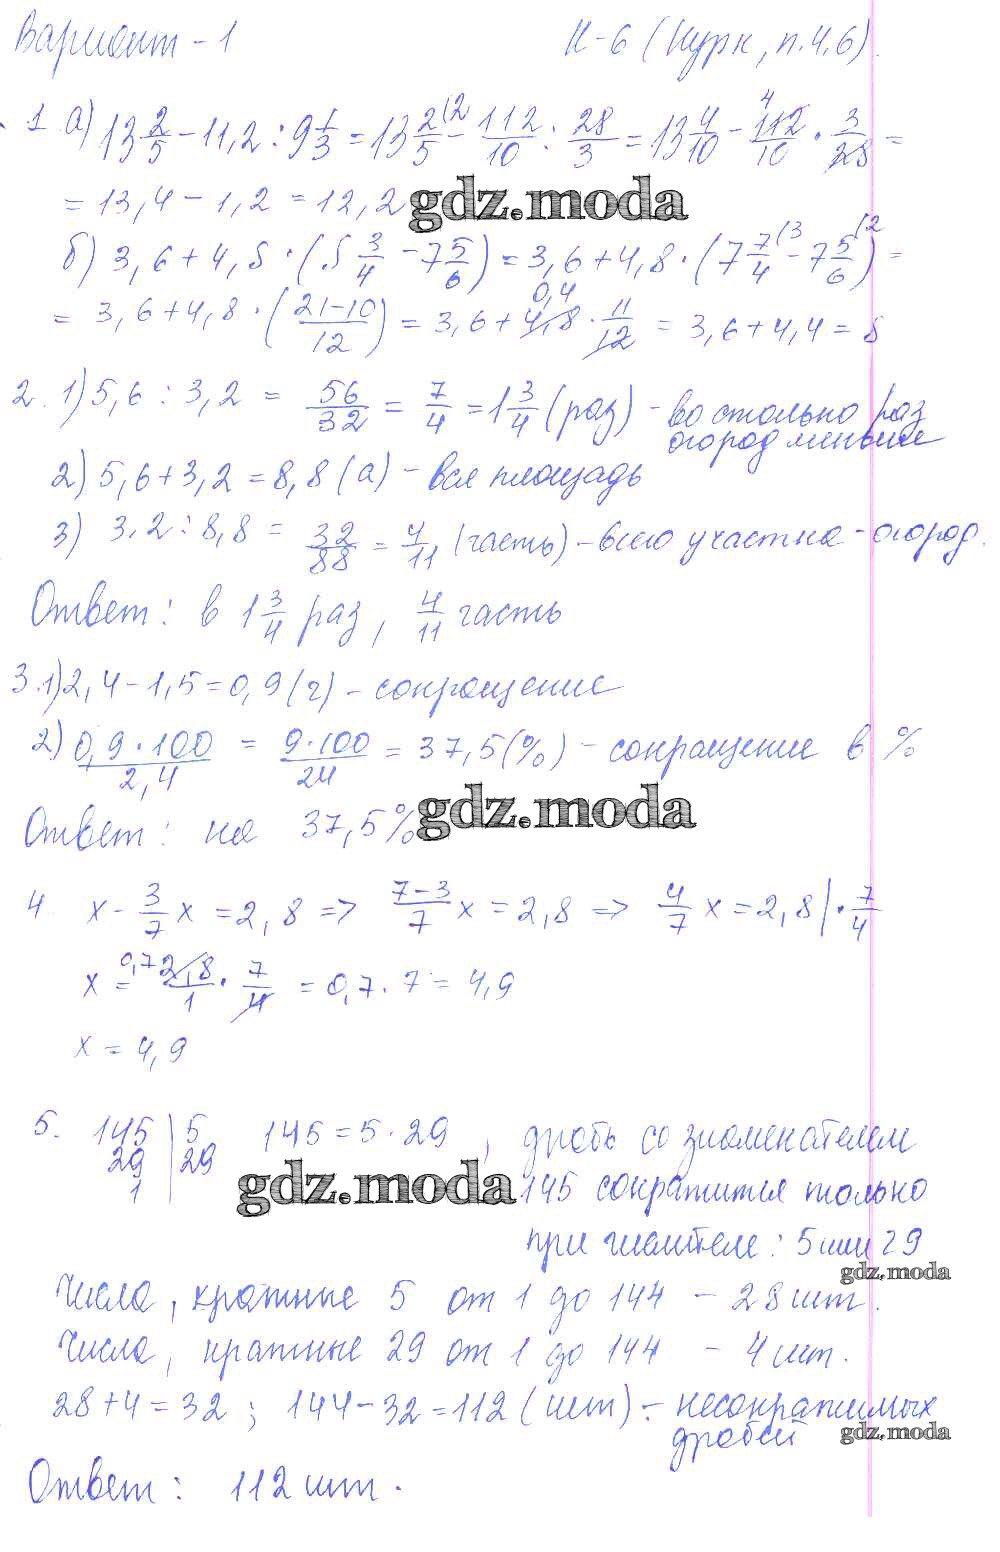 Вариант - 1 К-6 (Нурк, п.4,6).
1 а) 13 2/5 - 11,2 : 9 1/3 = 13 2/5 (2 - 112/10 : 28/3 = 13 4/10 - 112/10 · 3/28 =
4
= 13,4 - 1,2 = 12,2
gdz.moda
б) 3,6 + 4,8 · (8 3/4 - 7 5/6) = 3,6 + 4,8 · (7 7/4 (3 - 7 5/6 (2) =
= 3,6 + 4,8 · (21-10/12) = 3,6 + 4,8 · 11/12 = 3,6 + 4,4 = 8
0,4
2. 1) 5,6 : 3,2 = 56/32 = 7/4 = 1 3/4 (раз) - во столько раз
огород меньше
2) 5,6 + 3,2 = 8,8 (а) - вся площадь
3) 3,2 : 8,8 = 32/88 = 4/11 (часть) - всего участка - огород.
Ответ: в 1 3/4 раз, 4/11 часть
3. 1) 2,4 - 1,5 = 0,9 (г) - сокращение
2) 0,9 · 100/2,4 = 9 · 100/24 = 37,5 (%) - сокращение в %
Ответ: на 37,5%
gdz.moda
4. x - 3/7 x = 2,8 => 7-3/7 x = 2,8 => 4/7 x = 2,8 | · 7/4
x = 0,7 2,8/1 · 7/4 = 0,7 · 7 = 4,9
x = 4,9
5. 145 | 5 145 = 5 · 29 , дробь со знаменателем
29 | 29
1
gdz.moda
145 сократится только
при числителе: 5 или 29
gdz.moda
Числа, кратные 5 от 1 до 144 - 28 шт.
Числа, кратные 29 от 1 до 144 - 4 шт.
28 + 4 = 32 ; 144 - 32 = 112 (шт) - несократимых
дробей
gdz.moda
Ответ: 112 шт.